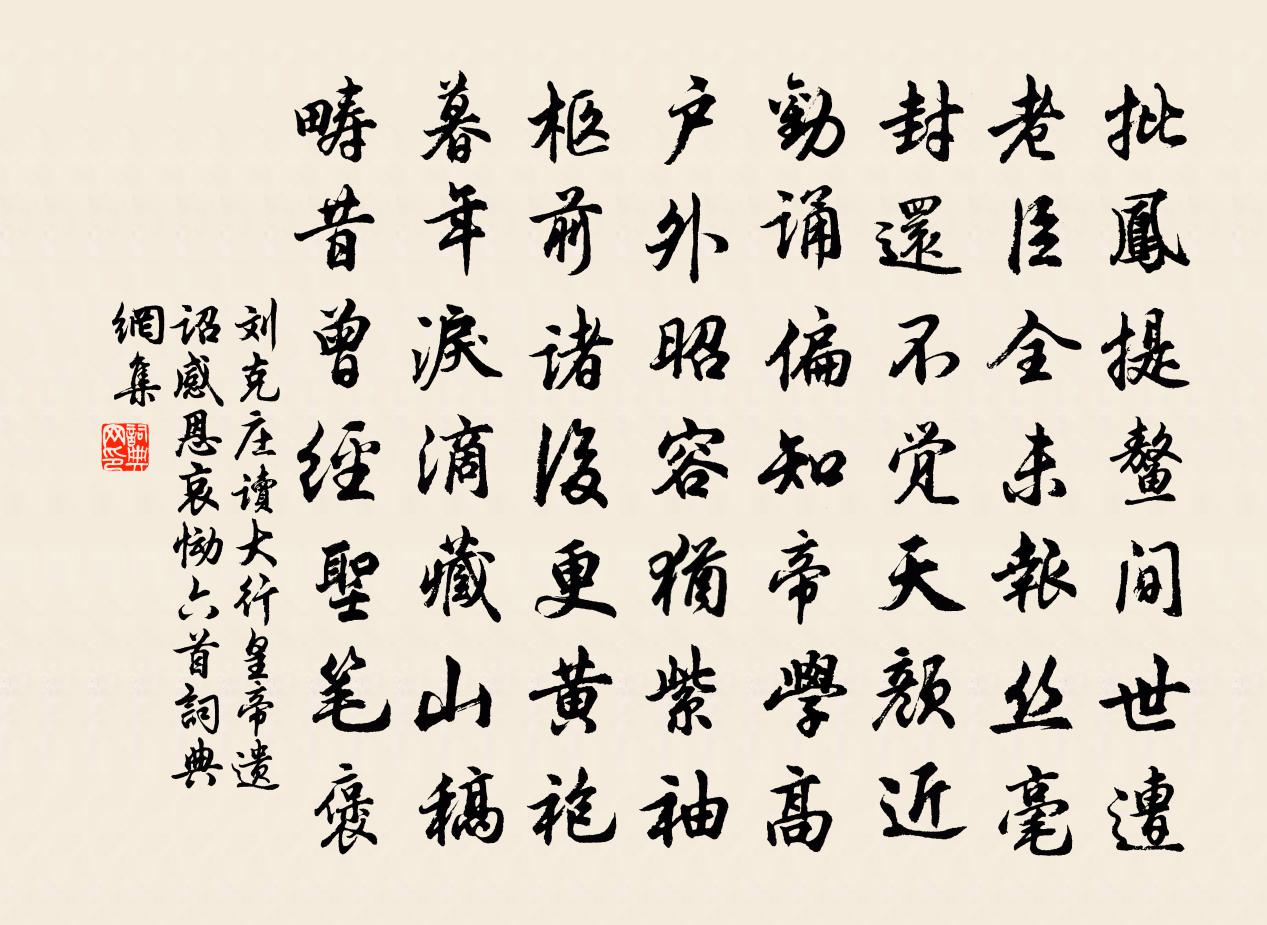 批鳳提鰲间世遭
老臣全未報丝毫
封還不觉天顏近
勸诵偏知帝學高
户外昭容猶紫袖
柩前诸後更黄袍
暮年淚滴藏山稿
畴昔曾經聖笔褒
刘克庄讀大行皇帝遗
诏感恩哀恸六首詞典
網集
詞典网